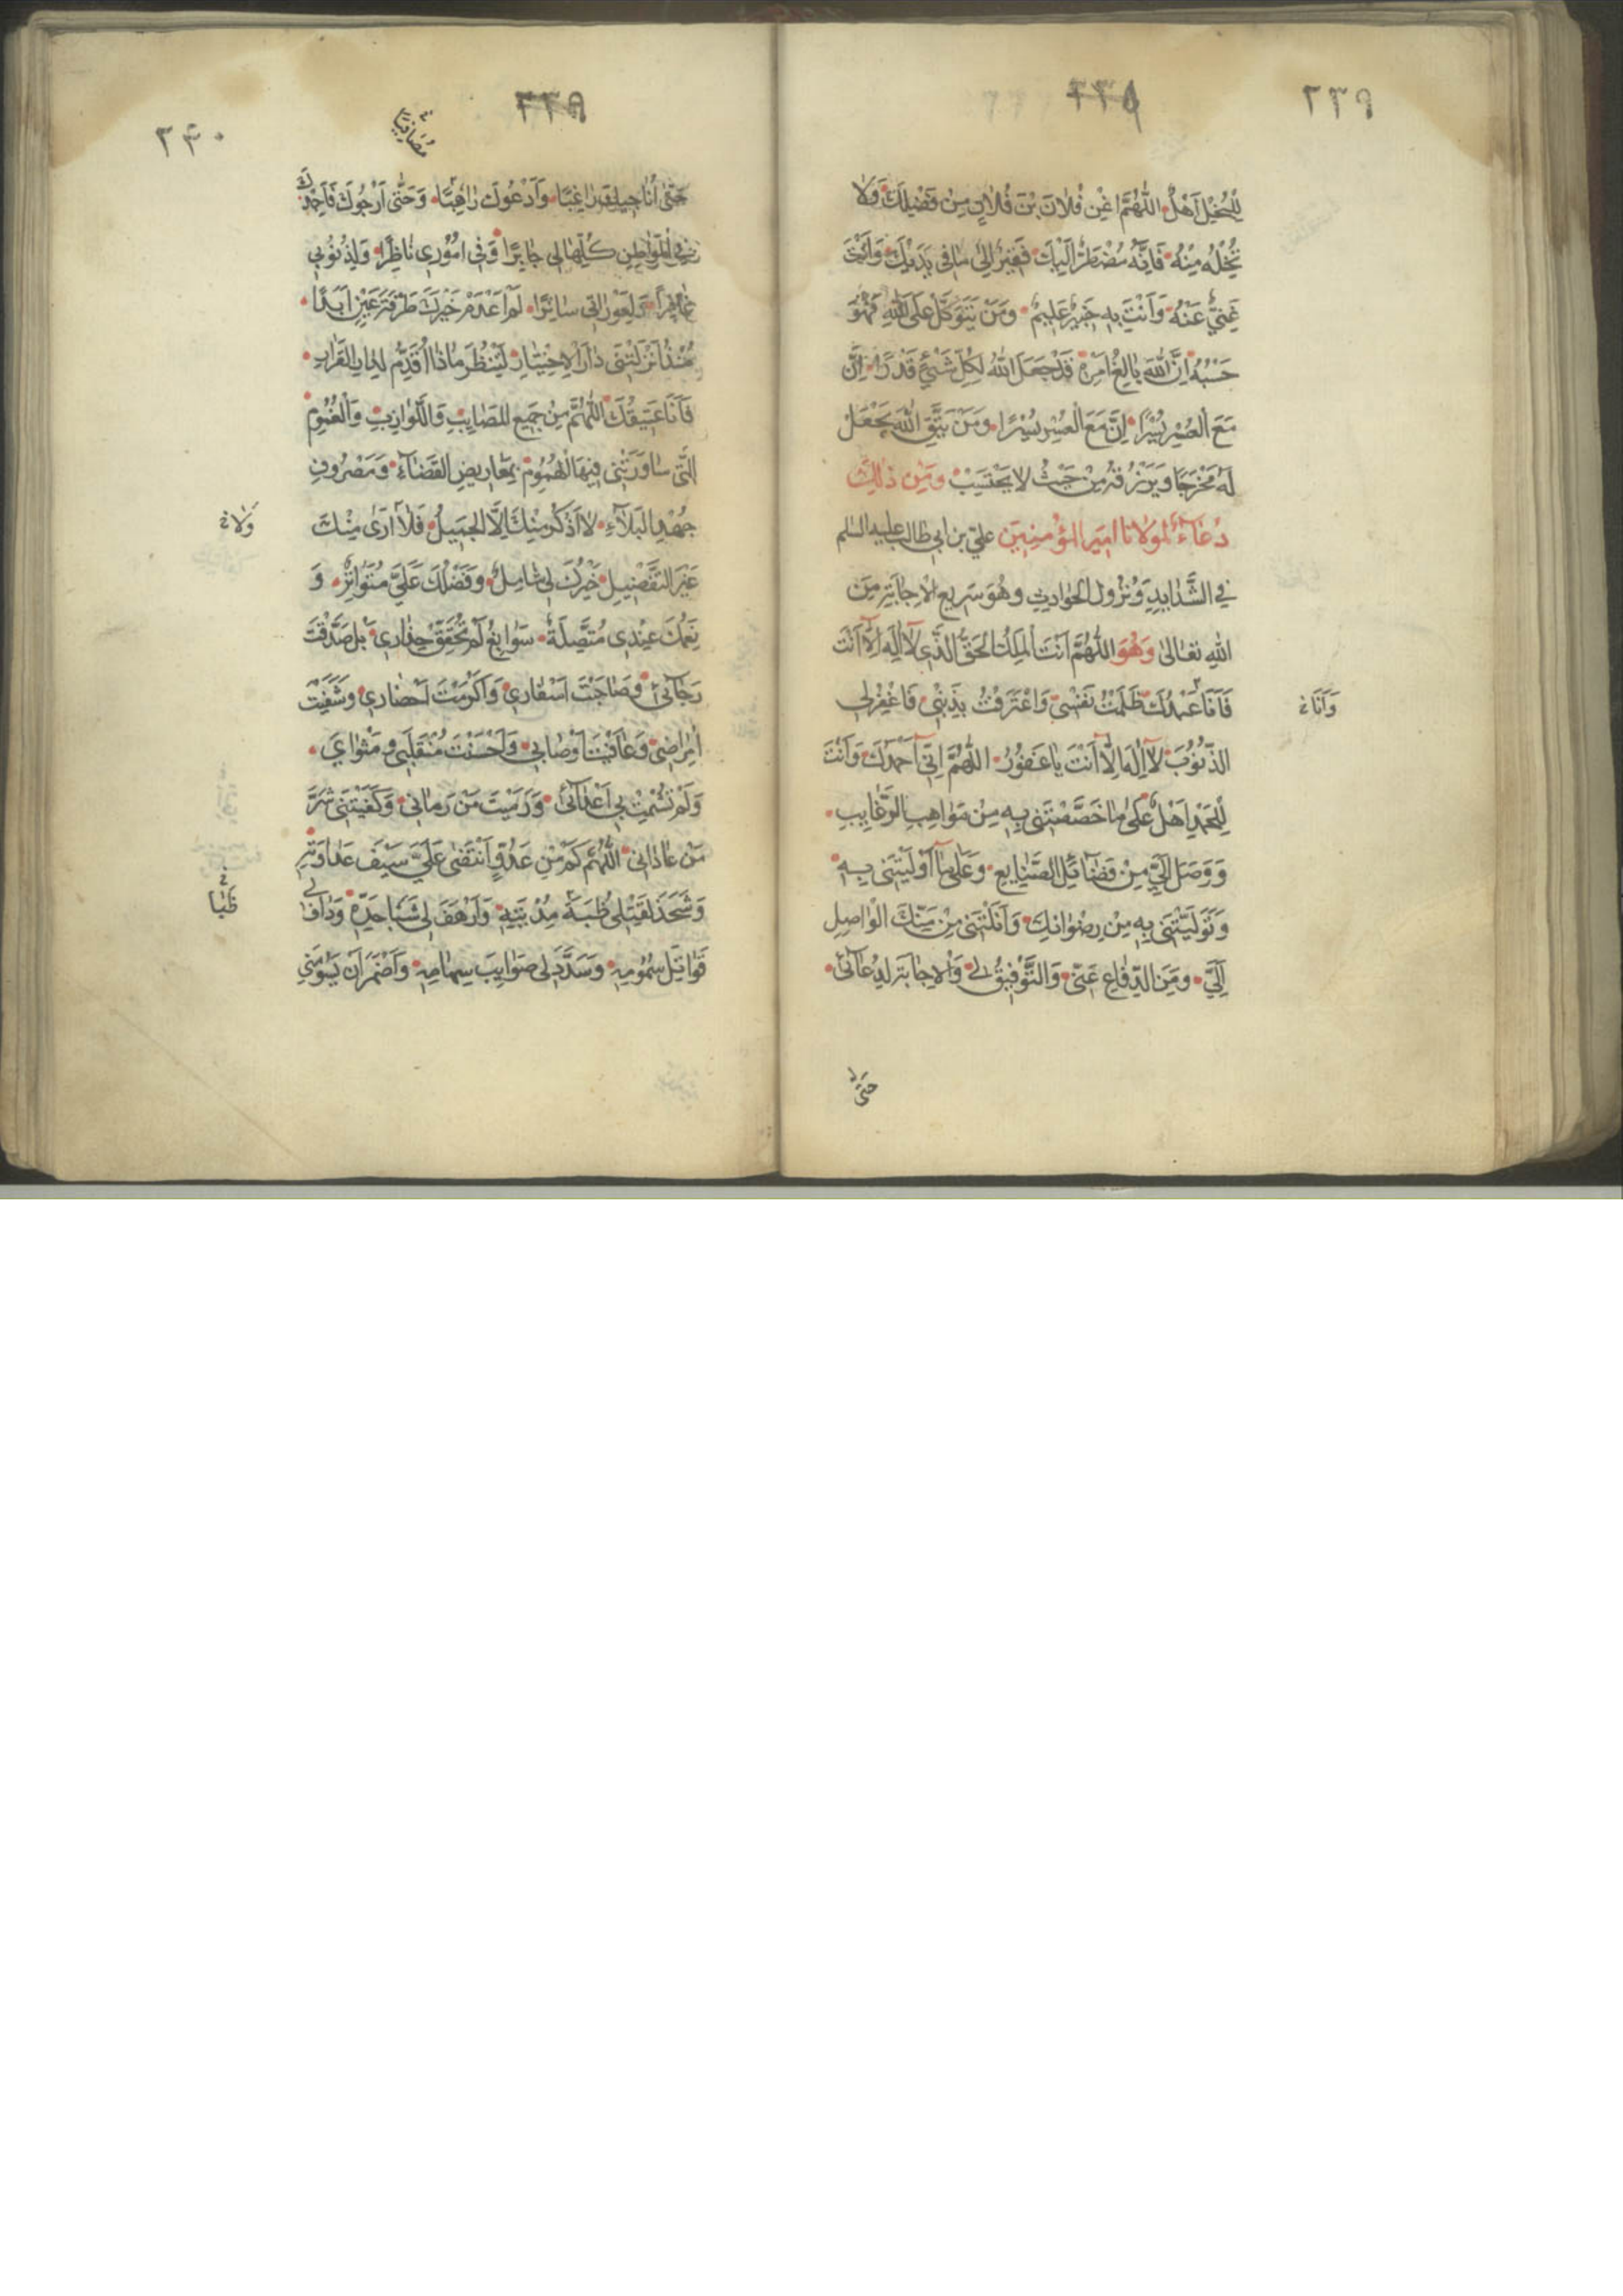 ٢٣٩
٢٣٨
لِلْبُخْلِ اَهْلٌ اللّٰهُمَّ اغْنِ فُلانَ بْنَ فُلانٍ مِنْ فَضْلِكَ وَلا
تُخْلِهِ مِنْهُ فَاِنَّهُ مُضْطَرٌّ اِلَيْكَ فَقِيرٌ اِلى ما فى يَدَيْكَ وَاَنْتَ
غَنِيٌّ عَنْهُ وَاَنْتَ بِهِ خَبِيرٌ عَلِيمٌ وَمَنْ يَتَوَكَّلْ عَلَى اللّٰهِ فَهُوَ
حَسْبُهُ اِنَّ اللّٰهَ بالِغُ اَمْرِهِ قَدْ جَعَلَ اللّٰهُ لِكُلِّ شَيْءٍ قَدْرًا اِنَّ
مَعَ الْعُسْرِ يُسْرًا اِنَّ مَعَ الْعُسْرِ يُسْرًا وَمَنْ يَتَّقِ اللّٰهَ يَجْعَلْ
لَهُ مَخْرَجًا وَيَرْزُقْهُ مِنْ حَيْثُ لا يَحْتَسِبُ وَمِنْ ذٰلِكَ
دُعَاءٌ لمولانا امير المؤمنين علي بن ابي طالب عليه السلم
فِي الشَّدايِدِ وَنُزُولِ الْحَوادِثِ وَهُوَ سَرِيعُ الاِجابَةِ مِنَ
اللّٰهِ تَعالىٰ وَهُوَ اللّٰهُمَّ اَنْتَ الْمَلِكُ الْحَقُّ الَّذِى لا اِلٰهَ اِلّا اَنْتَ
فَاَنَا عَبْدُكَ ظَلَمْتُ نَفْسِى وَاعْتَرَفْتُ بِذَنْبِى فَاغْفِرْ لِى
وَاَنَا خ
الذُّنُوبَ لا اِلٰهَ اِلّا اَنْتَ يا غَفُورُ اللّٰهُمَّ اِنِّى اَحْمَدُكَ وَاَنْتَ
لِلْحَمْدِ اَهْلٌ عَلىٰ ما خَصَّصْتَنِى بِهِ مِنْ مَواهِبِ الرَّغايِبِ
وَوَصَلَ اِلَيَّ مِنْ فَضائِلِ الصَّنايِعِ وَعَلىٰ ما اَوْلَيْتَنِى بِهِ
وَتَوَلَّيْتَنِى بِهِ مِنْ رِضْوانِكَ وَاَنَلْتَنِى مِنْ مَنِّكَ الْواصِلِ
اِلَيَّ وَمِنَ الدِّفاعِ عَنِّى وَالتَّوْفِيقِ لِى وَالاِجابَةِ لِدُعآئِى
حَتّى
٢٤٠
٢٣٩
مُصَافِيًا خ
حَتّى اُناجِيكَ راغِبًا وَاَدْعُوكَ راهِبًا وَحَتّى اَرْجُوكَ فَاَجِدُكَ
فِى الْمَواطِنِ كُلِّها لِى جابِرًا وَفِى اُمُورِى ناظِرًا وَلِذُنُوبِى
غافِرًا وَلِعَوْراتِى ساتِرًا لَمْ اَعْدَمْ خَيْرَكَ طَرْفَةَ عَيْنٍ اَبَدًا
مُنْذُ اَنْزَلْتَنِى دارَ الاِخْتِبارِ لِتَنْظُرَ ماذا اُقَدِّمُ لِدارِ الْقَرارِ
فَاَنَا عَتِيقُكَ اللّٰهُمَّ مِنْ جَمِيعِ الْمَصايِبِ وَاللَّوازِبِ وَالْغُمُومِ
الَّتِى ساوَرَتْنِى فِيهَا الْهُمُومُ بِمَعارِيضِ الْقَضآءِ وَمَصْرُوفِ
جُهْدِ الْبَلآءِ لا اَذْكُرُ مِنْكَ اِلَّا الْجَمِيلَ فَلا اَرىٰ مِنْكَ
وَلا خ
غَيْرَ التَّفْضِيلِ خَيْرُكَ لِى شامِلٌ وَفَضْلُكَ عَلَيَّ مُتَواتِرٌ وَ
نِعَمُكَ عِنْدِى مُتَّصِلَةٌ سَوابِغُ لَمْ تُحَقِّقْ حِذارِى بَلْ صَدَّقْتَ
رَجآئِى وَصاحَبْتَ اَسْفارِى وَاَكْرَمْتَ اَحْضارِى وَشَفَيْتَ
اَمْراضِى وَعافَيْتَ اَوْصابِى وَاَحْسَنْتَ مُنْقَلَبِى وَمَثْوايَ
وَلَمْ تُشْمِتْ بِى اَعْدآئِى وَرَمَيْتَ مَنْ رَمانِى وَكَفَيْتَنِى شَرَّ
مَنْ عادانِى اللّٰهُمَّ كَمْ مِنْ عَدُوٍّ انْتَضىٰ عَلَيَّ سَيْفَ عَداوَتِهِ
وَشَحَذَ لِقَتْلِى ظُبَةَ مُدْيَتِهِ وَاَرْهَفَ لِى شَبا حَدِّهِ وَدافَ لِى
ظُبَا خ
قَواتِلَ سُمُومِهِ وَسَدَّدَ لِى صَوايِبَ سِهامِهِ وَاَضْمَرَ اَنْ يَسُومَنِى